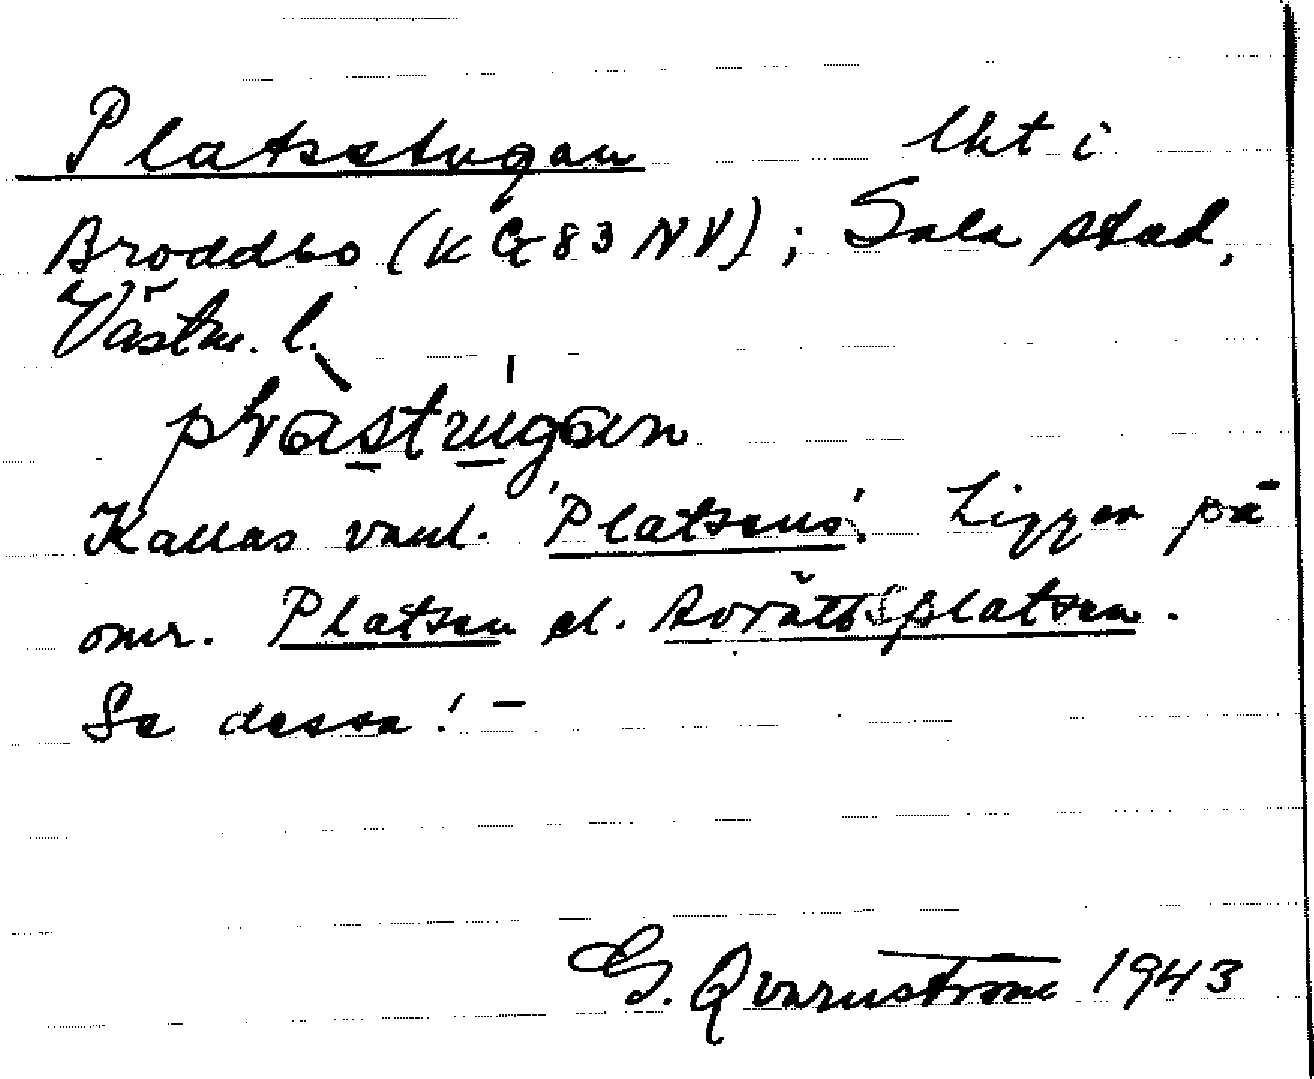 Platsstugan lht i
Broddbo (K G 83 NV); Sala stad,
Västm. l.
Kallas vanl. 'Platsens'. Ligger på
omr. Platsen el. Avrättsplatsen.
Se dessa! –
G. Qvarnström 1943